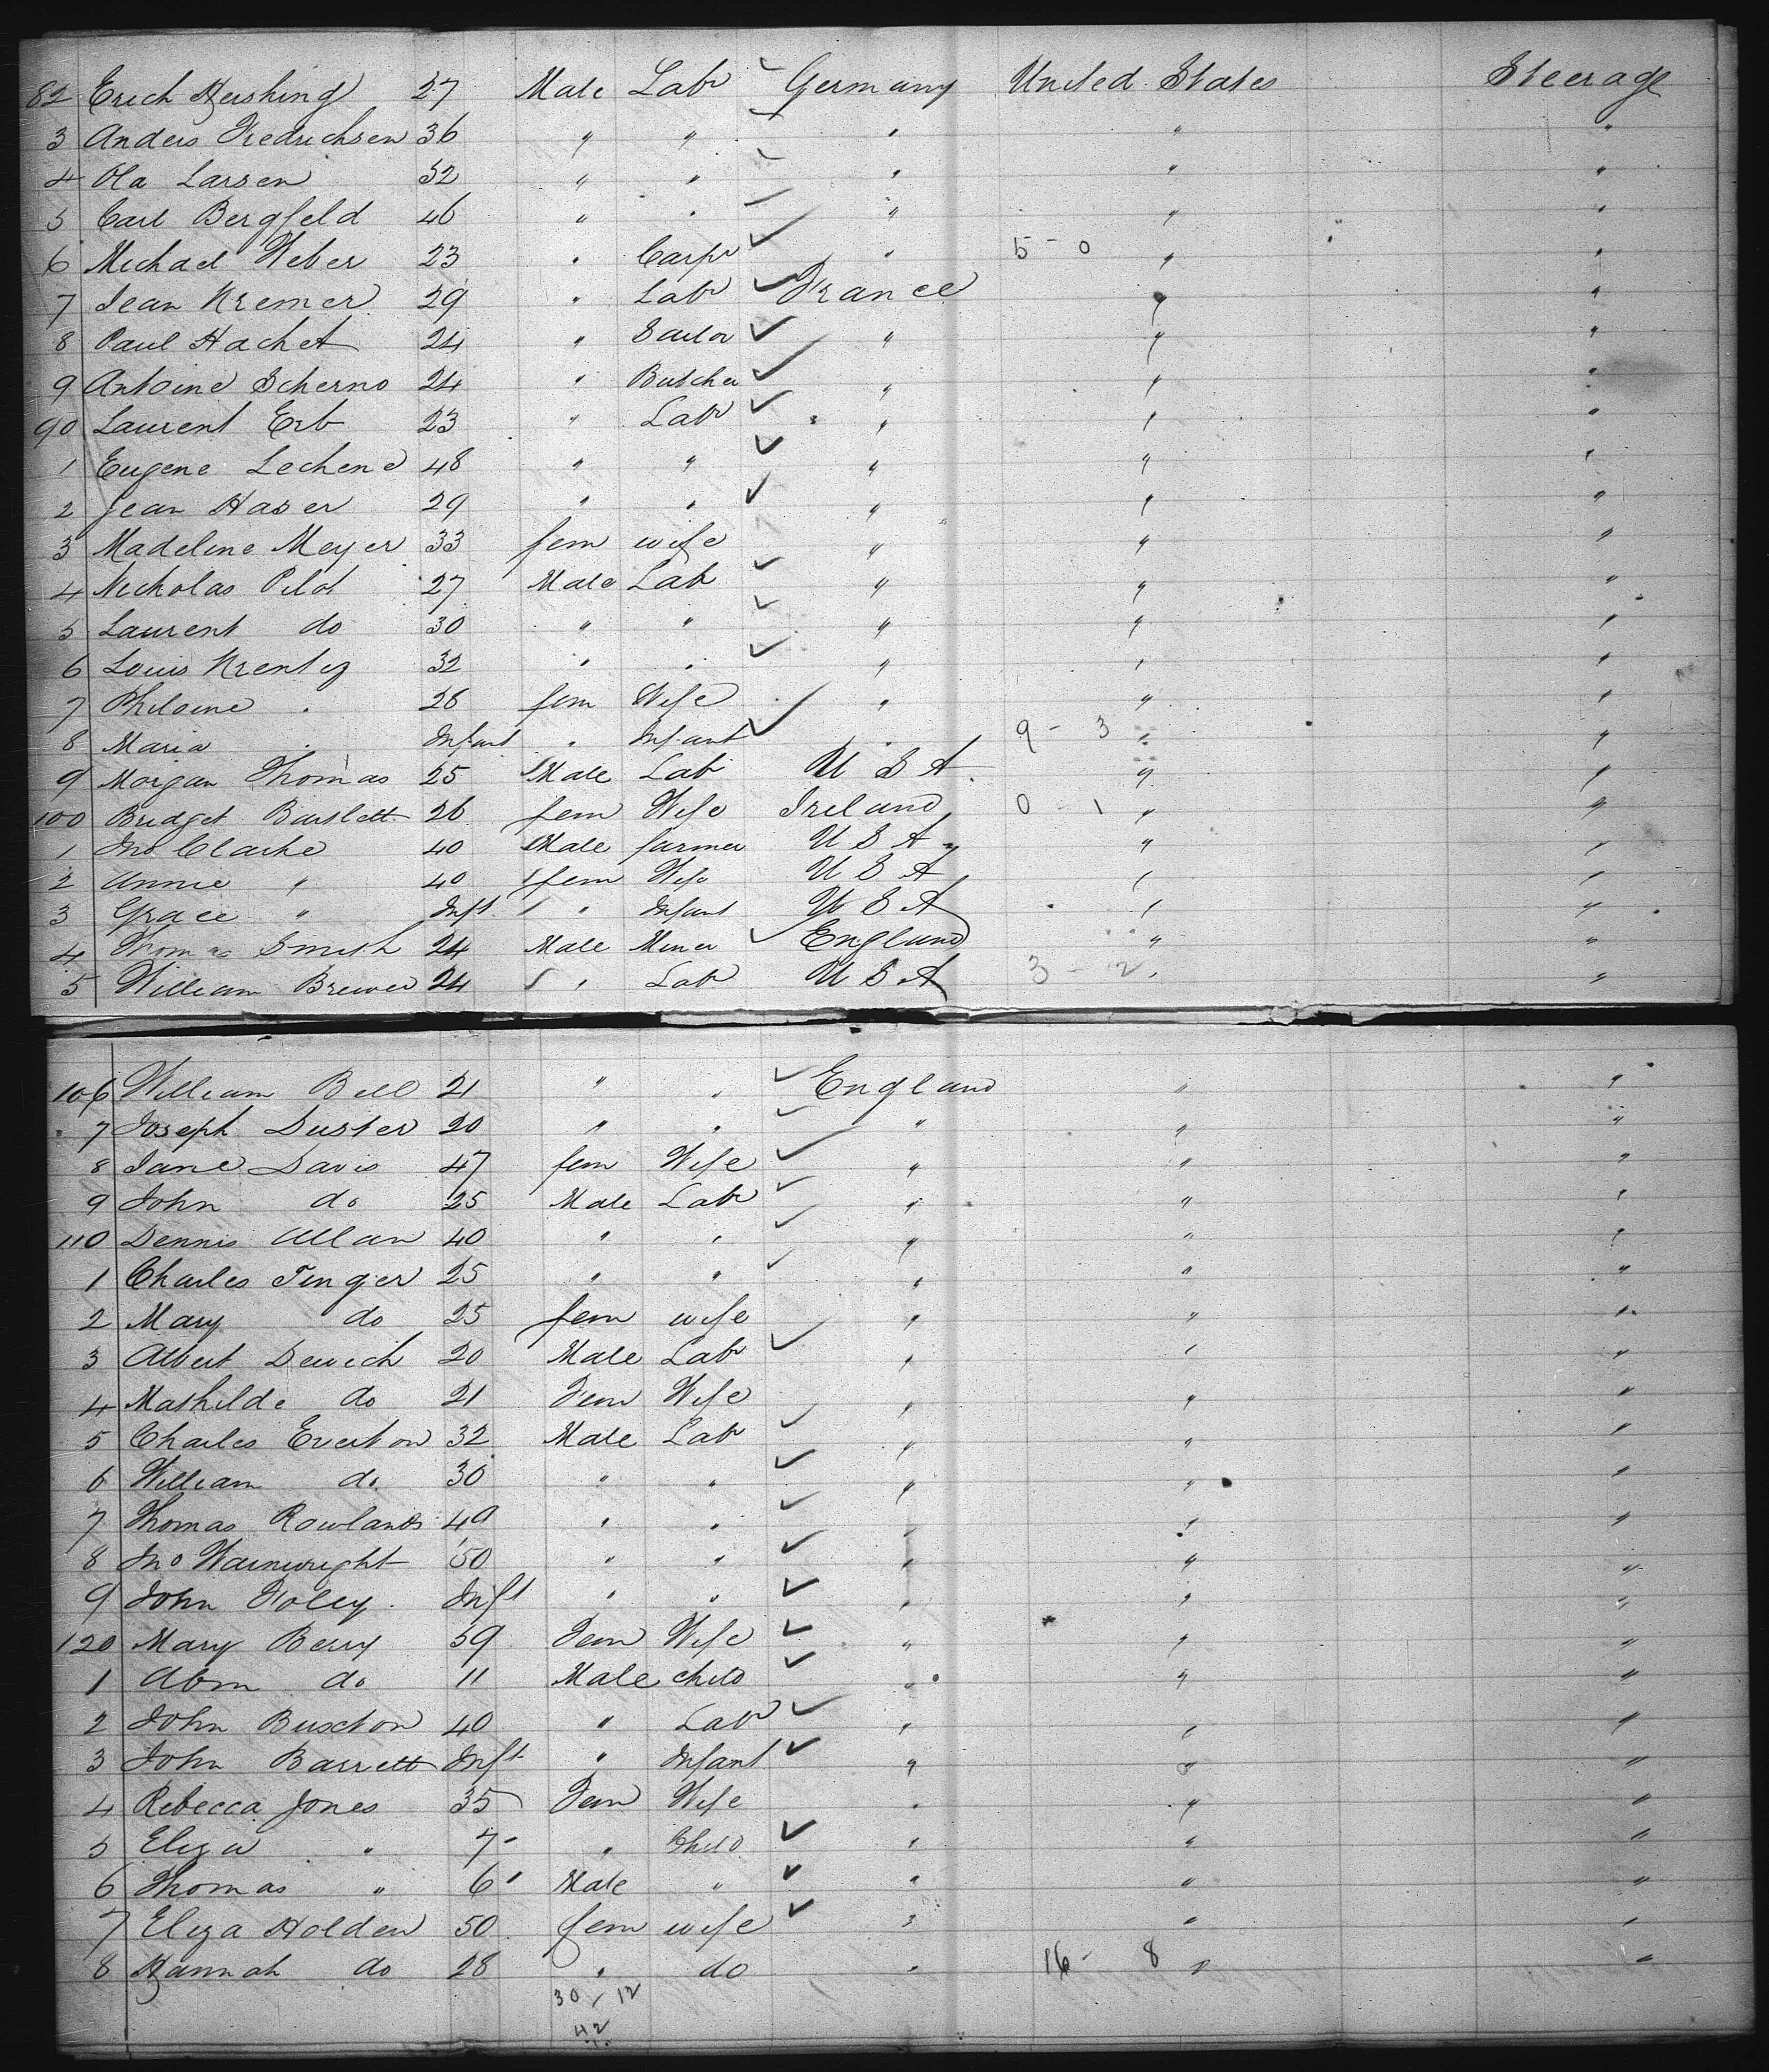 82 Erich Hershing 27 Male Labr Germany United States Steerage
3 Anders Fredrichsen 36 " " " " "
4 Ola Larsen 32 " " " " "
5 Carl Bergfeld 46 " " " " "
6 Michael Weber 23 " Carpr " 5 - 0 " "
7 Jean Kremer 29 " Labr France " "
8 Paul Hachet 24 " " " "
9 Antoine Scherno 24 " Butcher " " "
90 Laurent Erb 23 " Labr " " "
1 Eugene Lechene 48 " " " " "
2 Jean Haser 29 " " " " "
3 Madeline Meyer 33 fem wife " " "
4 Nicholas Pilot 27 Male Lab " " "
5 Laurent do 30 " " " " "
6 Louis Krentz 32 " " " " "
7 Philoine " 28 fem Wife " " "
8 Maria " Infant " Infant " 9 - 3 " "
9 Morgan Thomas 25 Male Lab U S A " "
100 Bridget Bartlett 26 fem Wife Ireland 0 - 1 " "
1 Jno Clarke 40 Male farmer U S A " "
2 Annie " 40 fem Wife U S A " "
3 Grace " Inft " Infant U S A " "
4 Thomas Smith 24 Male Miner England " "
5 William Brewer 24 " Labr U S A 3 - 12 " "
106 William Bell 21 " " England " "
7 Joseph Duster 20 " " " " "
8 Jane Davis 47 fem Wife " " "
9 John do 25 Male Labr " " "
110 Dennis Allan 40 " " " " "
1 Charles Tinger 25 " " " " "
2 Mary do 25 fem wife " " "
3 Albert Dewich 20 Male Labr " " "
4 Mathilde do 21 Fem Wife " " "
5 Charles Everton 32 Male Labr " " "
6 William do 30 " " " " "
7 Thomas Rowlands 49 " " " " "
8 Jno Wainwright 50 " " " " "
9 John Foley Inft " " " " "
120 Mary Berry 59 Fem Wife " " "
1 Abm do 11 Male child " " "
2 John Buxton 40 " Labr " " "
3 John Barrett Inft " Infant " " "
4 Rebecca Jones 35 Fem Wife " " "
5 Eliza " 7 " Child " " "
6 Thomas " 6 Male " " " "
7 Eliza Holden 50 fem wife " " "
8 Hannah do 28 " do " 16 - 8 " "
30 / 12
42